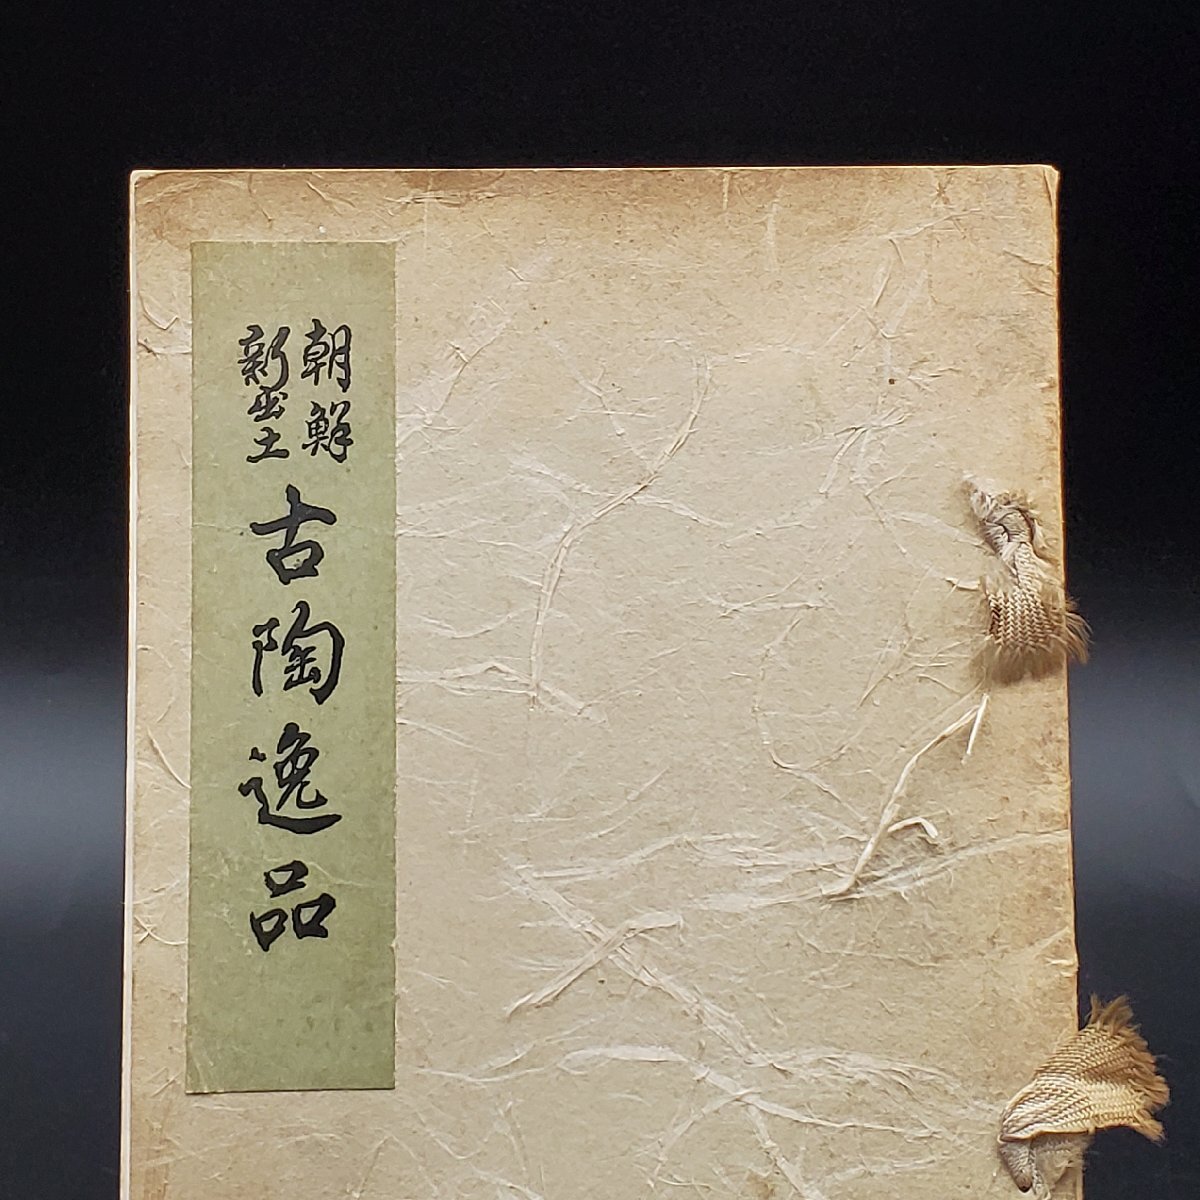 朝鮮
新出土
古陶逸品